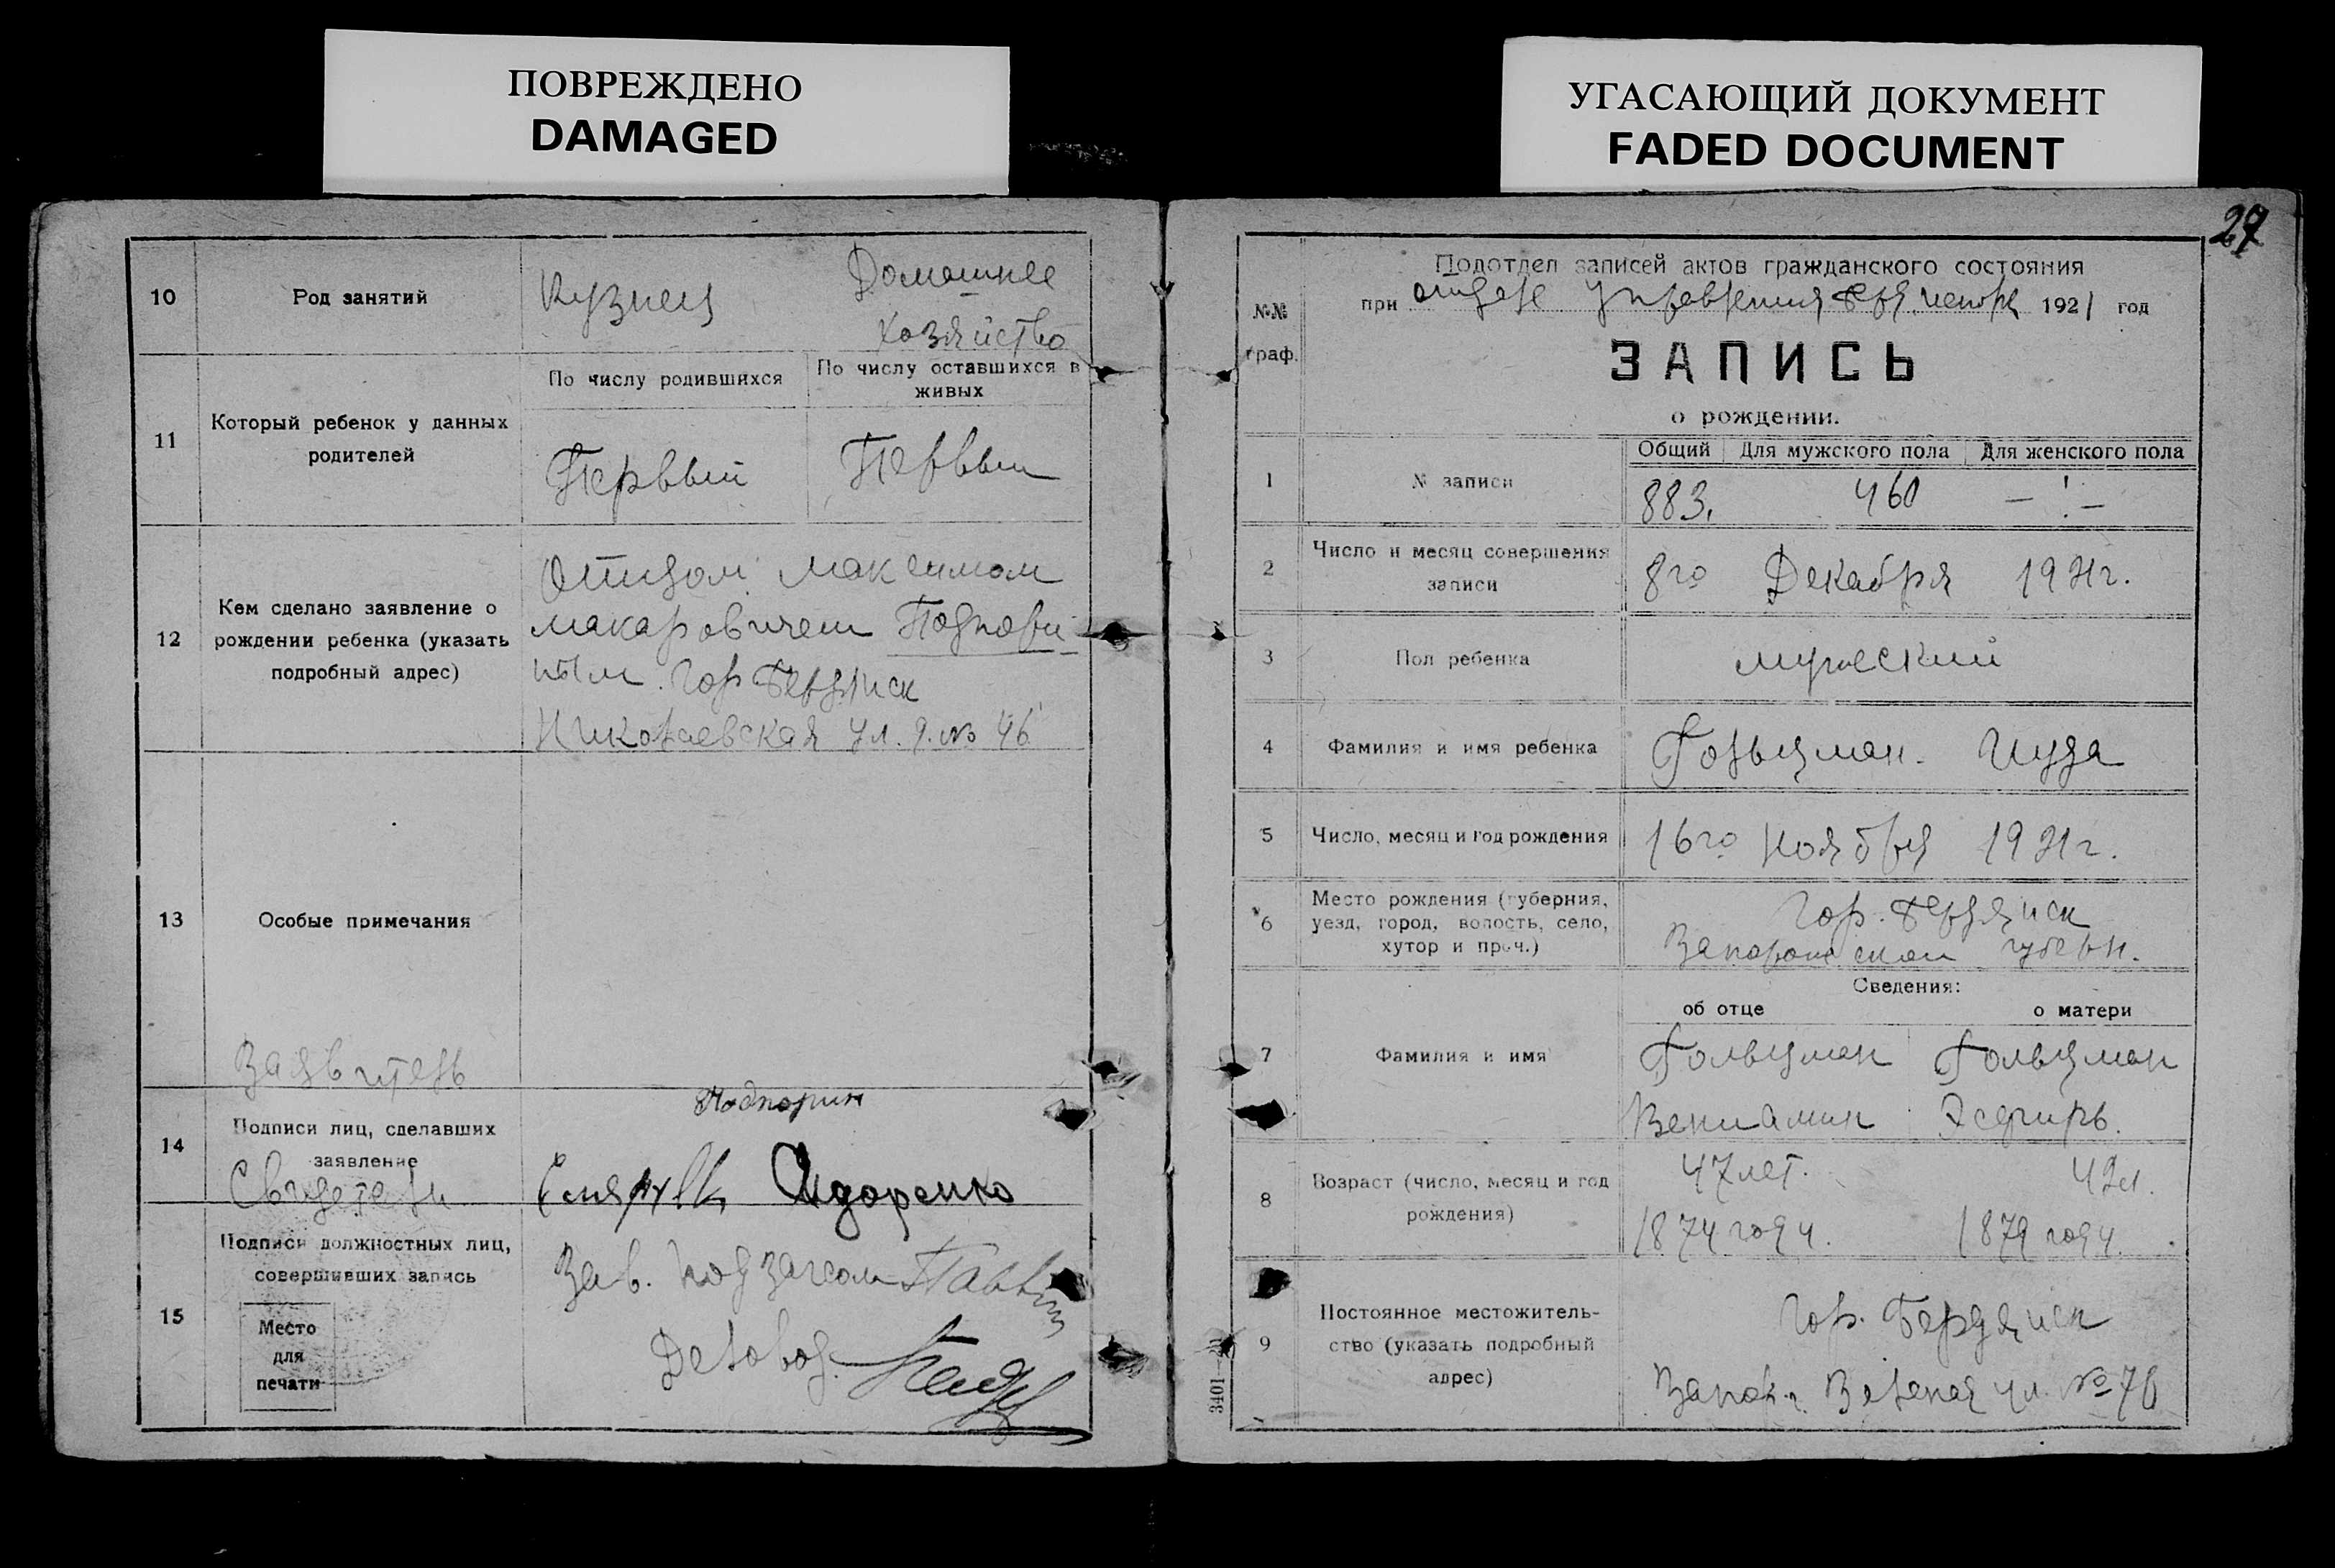 ПОВРЕЖДЕНО
DAMAGED
10
Род занятий
Кузнец
Домашнее
хозяйство
11
Который ребенок у данных
родителей
По числу родившихся
По числу оставшихся в
живых
Первый
Первый
12
Кем сделано заявление о
рождении ребенка (указать
подробный адрес)
Отцом Максимом
Макаровичем Подпори
ным. Гор Бердянск
Николаевская ул. д. № 46
13
Особые примечания
Заявитель
14
Подписи лиц, сделавших
заявление
Свидетели
Подпорин
Сидоренко
15
Подписи должностных лиц,
совершивших запись
Место
для
печати
Зав. подзагсом
Деловод.
УГАСАЮЩИЙ ДОКУМЕНТ
FADED DOCUMENT
27
№№
граф.
Подотдел записей актов гражданского состояния
при отделе Управления Бердянск 1921 год
ЗАПИСЬ
о рождении.
1
№ записи
Общий Для мужского пола Для женского пола
883. 460 — ! —
2
Число и месяц совершения
записи
8го Декабря 1921г.
3
Пол ребенка
мужеский
4
Фамилия и имя ребенка
Гольцман. Иуда
5
Число, месяц и год рождения
16го Ноября 1921г.
6
Место рождения (губерния,
уезд, город, волость, село,
хутор и проч.)
Гор. Бердянск
Запорожской губерн.
Сведения:
об отце о матери
7
Фамилия и имя
Гольцман Гольцман
Вениамин Эсфирь.
8
Возраст (число, месяц и год
рождения)
47 лет. 42 л.
1874 году. 1879 году.
9
Постоянное местожитель-
ство (указать подробный
адрес)
Гор. Бердянск
Запор. г. Зеленая ул. № 76
3401—21